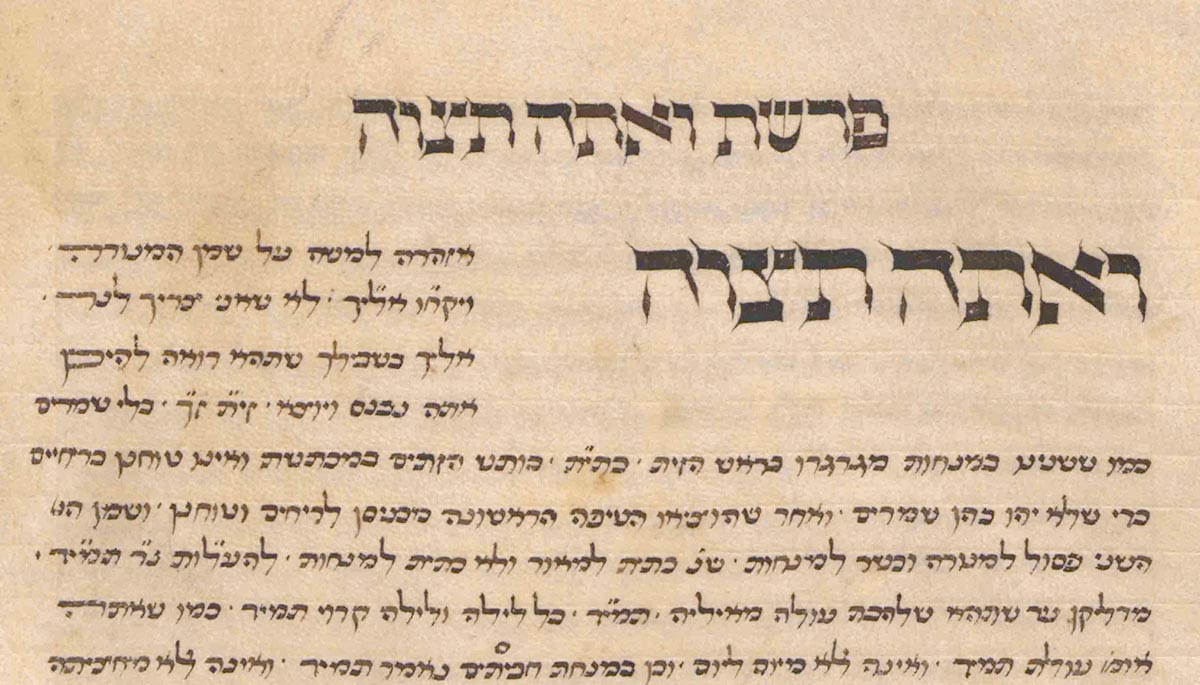 פרשת ואתה תצוה
ואתה תצוה
אזהרה למשה על שמן המנורה ·
ויקח֞ו אל֞יך · לא שאני צריך לנרה ·
אליך בשבילך שתהא רואה להיכן
אתה נכנס ויוצא · זי֞ת ז֞ך · בלי שמרים
כמו ששנינו במנחות מגרגרו בראש הזית · כתי֞ת · כותש הזתים במכתשת ואינו טוחנן ברחיים
כדי שלא יהו בהן שמרים · ואחר שהוציאו הטיפה הראשונה מכניסן לריחים וטוחנן · ושמן הוא
השני פסול למנורה וכשר למנחות · שנ׳ כתית למאור ולא כתית למנחות · להע֞לות נ֞ר תמ֞יד ·
מדליקן עד שתהא שלהבת עולה מאיליה · תמ֞יד · כל לילה ולילה קרוי תמיד · כמו שאתה
אומ׳ עולת תמיד · ואינה לא מיום ליום · וכן במנחת חביתים נאמר תמיד · ואינה לא מחציתה